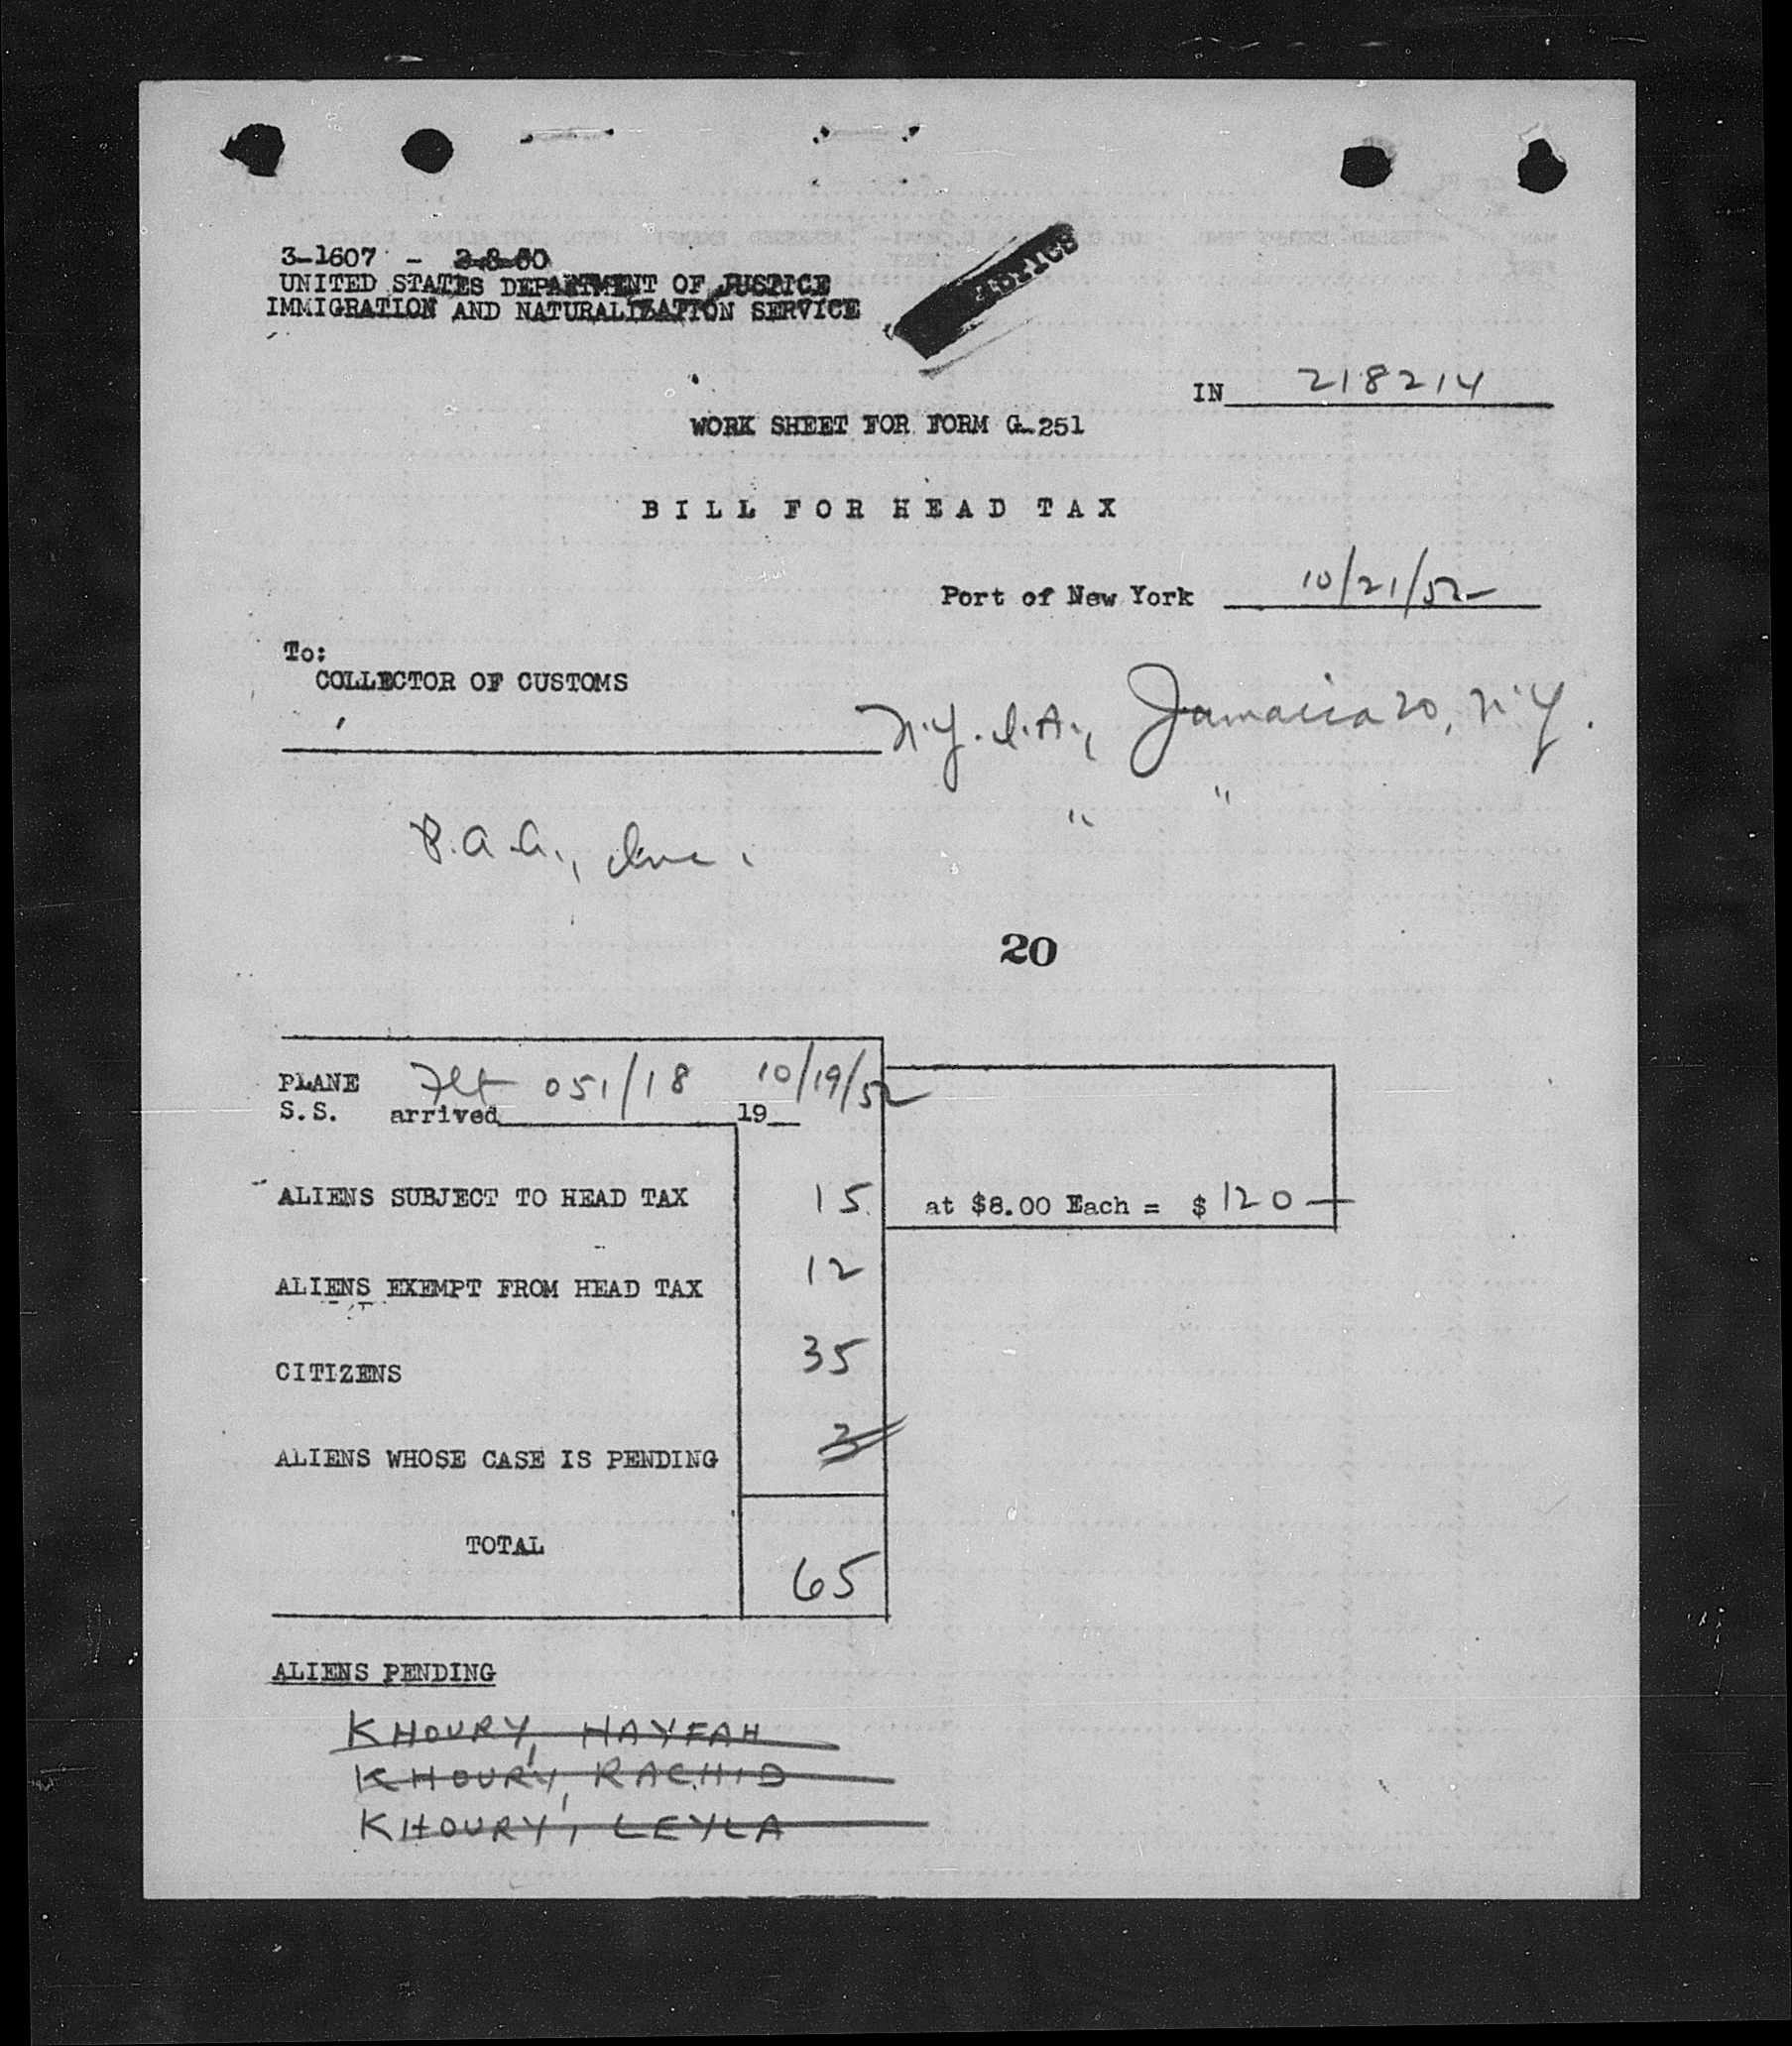 3-1607 - 2-8-50
UNITED STATES DEPARTMENT OF JUSTICE
IMMIGRATION AND NATURALIZATION SERVICE
IN 218214
WORK SHEET FOR FORM G-251
BILL FOR HEAD TAX
Port of New York 10/21/52
To:
COLLECTOR OF CUSTOMS
N.Y.I.A., Jamaica 20, N.Y.
P.A.A., Inc. " "
20
PLANE Flt 051/18 10/19/52
S.S. arrived 19
ALIENS SUBJECT TO HEAD TAX 15 at $8.00 Each = $ 120 —
ALIENS EXEMPT FROM HEAD TAX 12
CITIZENS 35
ALIENS WHOSE CASE IS PENDING 3
TOTAL 65
ALIENS PENDING
KHOURY, HAYFAH
KHOURY, RACHID
KHOURY, LEYLA